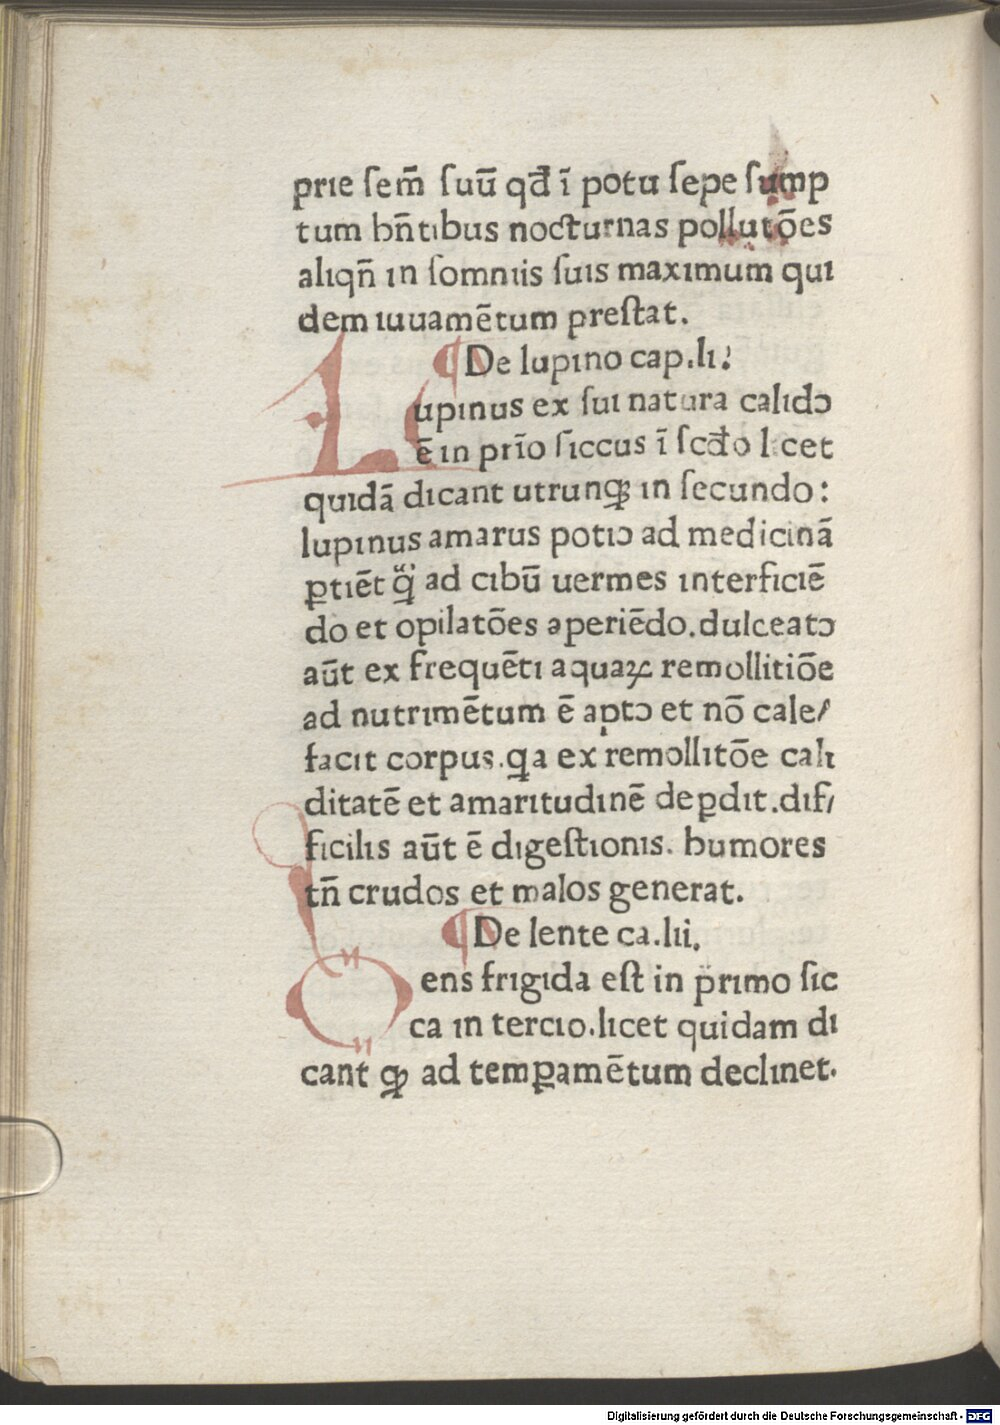 prie ſem̄ ſuū qđ ī potu ſepe ſump
tum bn̄tibus nocturnas pollutōes
aliqn̄ in ſomniis ſuis maximum qui
dem iuuamētum preſtat.
¶ De lupino cap.li.
Lupinus ex ſui natura calidꝰ
ē in prīo ſiccus ī ſcđo licet
quidā dicant utrunqꝫ in ſecundo:
lupinus amarus potiꝰ ad medicinā
ꝑtiēt qͣ̈ ad cibū uermes interficiē
do et opilatōes aperiēdo.dulceatꝰ
aūt ex frequēti aquaꝝ remollitiōe
ad nutrimētum ē aptꝰ et nō cale/
facit corpus.qa ex remollitōe cali
ditatē et amaritudinē deꝑdit.dif/
ficilis aūt ē digeſtionis. humores
tn̄ crudos et malos generat.
¶ De lente ca.lii.
ens frigida eſt in primo ſic
ca in tercio.licet quidam di
cant qꝫ ad temꝑamētum declinet.
Digitalisierung gefördert durch die Deutsche Forschungsgemeinschaft - DFG